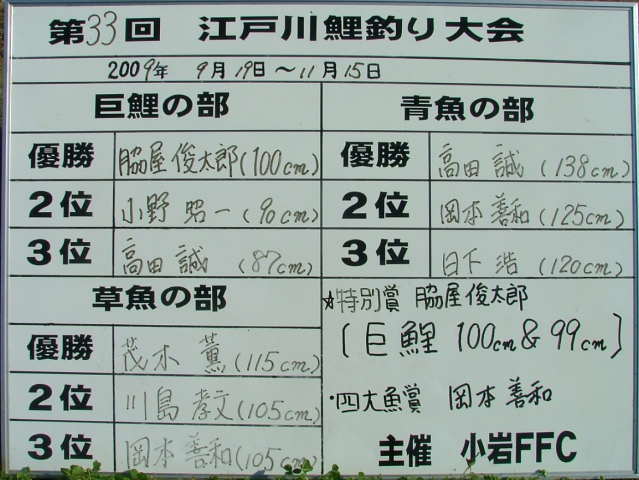 第33回 江戸川鯉釣り大会
2009年 9月19日～11月15日
巨鯉の部
優勝 脇屋俊太郎(100cm)
2位 小野昭一(90cm)
3位 高田誠(87cm)
草魚の部
優勝 茂木薫(115cm)
2位 川島孝文(105cm)
3位 岡本善和(105cm)
青魚の部
優勝 高田誠(138cm)
2位 岡本善和(125cm)
3位 日下浩(120cm)
☆特別賞 脇屋俊太郎
[巨鯉 100cm&99cm]
・四大魚賞 岡本善和
主催 小岩FFC